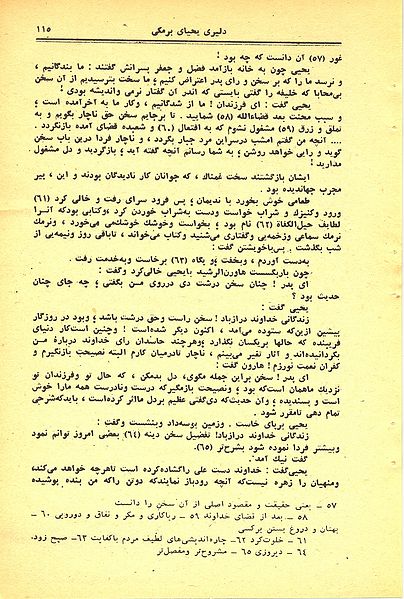 دلیری یحیای برمکی ۱۱۵
غور (۵۷) آن دانست که چه بود !
یحیی چون به خانه بازآمد فضل و جعفر پسرانش گفتند : ما بندگانیم ،
و نرسد ما را که بر سخن و رای پدر اعتراض کنیم ؛ ما سخت بترسیدیم از آن سخن
بی‌محابا که خلیفه را گفتی بایستی که اندر آن گفتار نرمی واندیشه بودی !
یحیی گفت : ای فرزندان ! ما از شدگانیم ، وکار ما به‌آخرآمده است ؛
و سبب محنت بعد قضاءالله (۵۸) شمایید . تا برجایم سخن حق ناچار بگویم و به
تملق و زرق (۵۹) مشغول نشوم که به افتعال (۶۰) و شعبده قضای آمده بازنگردد .
.... آنچه من گفتم امشب درسراین مرد جبار بگردد ، و ناچار فردا درین باب سخن
گوید و رایی خواهد روشن ؛ به شما رسانم آنچه گفته آید ؛ بازگردید و دل مشغول
مدارید !
ایشان بازگشتند سخت غمناك ، که جوانان کار نادیدگان بودند و این ، پیر
مجرب جهاندیده بود .
طعامی خوش بخورد با ندیمان ؛ پس فرود سرای رفت و خالی کرد (۶۱)
ورود وکنیزك و شراب خواست ودست به‌شراب خوردن کرد ،وکتابی بودکه آنرا
لطایف حیل‌الکفاة (۶۲) نام بود ؛ بخواست وخوشك خوشك‌می می‌خورد ، ونرمك
نرمك سماعی وزخمه‌یی وگفتاری می‌شنید وکتاب می‌خواند ، تاباقی روز ونیمه‌یی از
شب بگذشت . پس‌باخویشتن گفت :
به‌دست آوردم ، وبخفت ؛و پگاه (۶۳) برخاست وبه‌خدمت رفت .
چون باربگسست هارون‌الرشید بایحیی خالی‌کرد وگفت :
ای پدر ! چنان سخن درشت دی درروی من بگفتی ؛ چه جای چنان
حدیث بود ؟
یحیی گفت :
زندگانی خداوند درازباد! سخن راست وحق درشت باشد ؛ وبود در روزگار
پیشین ازین‌که ستوده می‌آمد ، اکنون دیگر شده‌است ! وچنین است‌کار دنیای
فریبنده که حالها بریکسان نگذارد ؛وهرچند حاسدان رای خداوند دربارۀ من
بگردانیده‌اند و آثار تغیر می‌بینم ، ناچار تادرمیان کارم البته نصیحت بازنگیرم و
کفران نعمت نورزم ! هارون گفت :
ای پدر ! سخن براین جمله مگوی، دل بدمکن ، که حال تو وفرزندان تو
نزدیك ماهمان است‌که بود ؛ ونصیحت بازمگیرکه درست ونادرست همه مارا خوش
است و پسندیده ؛ وآن حدیث‌که دی‌گفتی عظیم بردل مااثر کرده‌است ، بایدکه‌شرحی
تمام دهی تامقرر شود .
یحیی برپای خاست . وزمین بوسه‌داد وبنشست وگفت :
زندگانی خداوند درازباد! تفصیل سخن دینه (۶۴) بعضی امروز توانم نمود
وبیشتر فردا نموده شود بشرح‌تر (۶۵).
گفت نیك آمد.
یحیی‌گفت : خداوند دست علی راگشاده‌کرده است تاهرچه خواهد می‌کند،
ومنهیان را زهره نیست‌که آنچه رودباز نمایندکه دوتن راکه من بنده پوشیده
۵۷ ــ یعنی حقیقت و مقصود اصلی از آن سخن را دانست
۵۸ ــ بعد از قضای خداوند ۵۹ ــ ریاکاری و مکر و نفاق و دورویی ۶۰ ــ
بهتان و دروغ بستن برکسی
۶۱ ــ خلوت‌کرد ۶۲ــ چاره‌اندیشی‌های لطیف مردم باکفایت ۶۳ــ صبح زود.
۶۴ ــ دیروزی ۶۵ ــ مشروح‌تر ومفصل‌تر